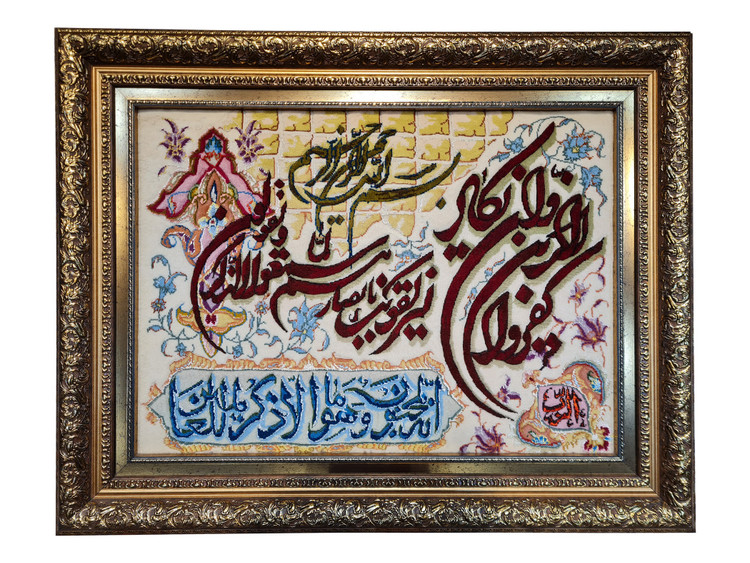 بسم الله الرحمن الرحیم
وان یکاد الذین کفروا
لیزلقونک بابصارهم لما سمعوا الذکر و یقولون
انه لمجنون و ما هو الا ذکر للعالمین